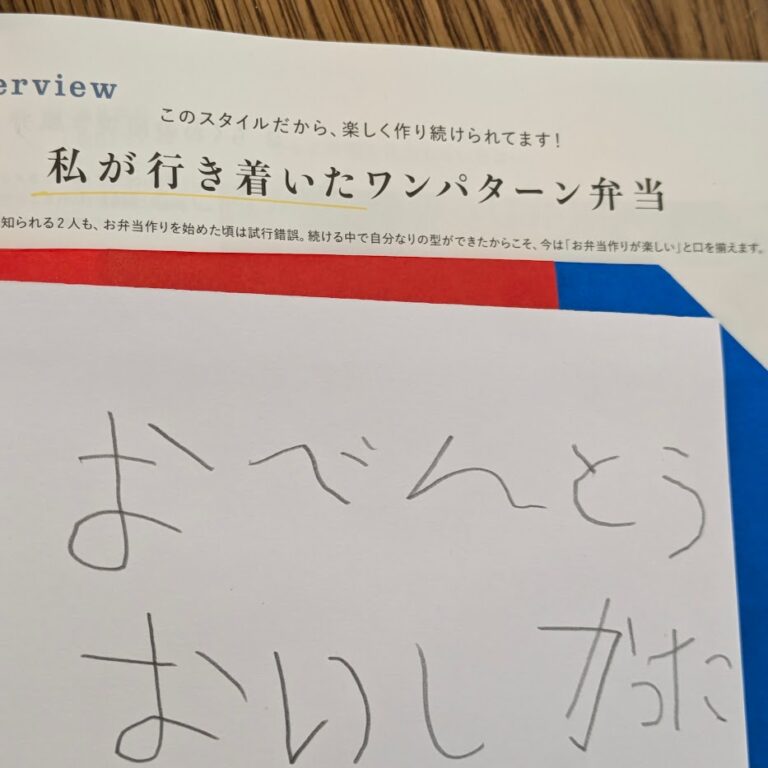 erview
このスタイルだから、楽しく作り続けられてます!
私が行き着いたワンパターン弁当
知られる2人も、お弁当作りを始めた頃は試行錯誤。続ける中で自分なりの型ができたからこそ、今は「お弁当作りが楽しい」と口を揃えます。
おべんとう
おいしかった